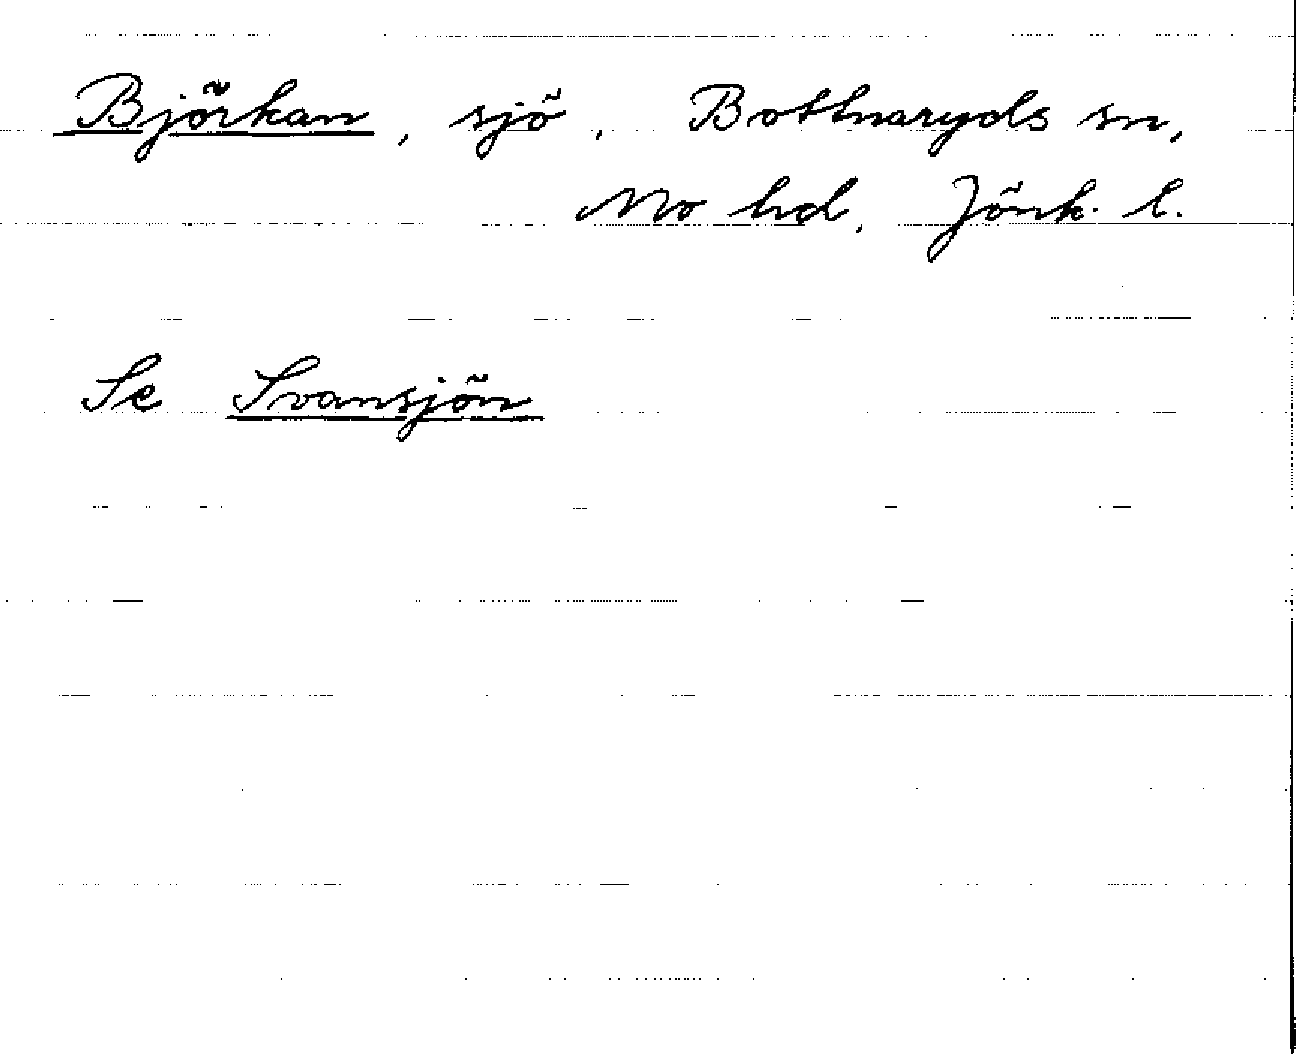 Björkan, sjö, Bottnaryds sn,
Mo hd, Jönk. l.
Se Svansjön